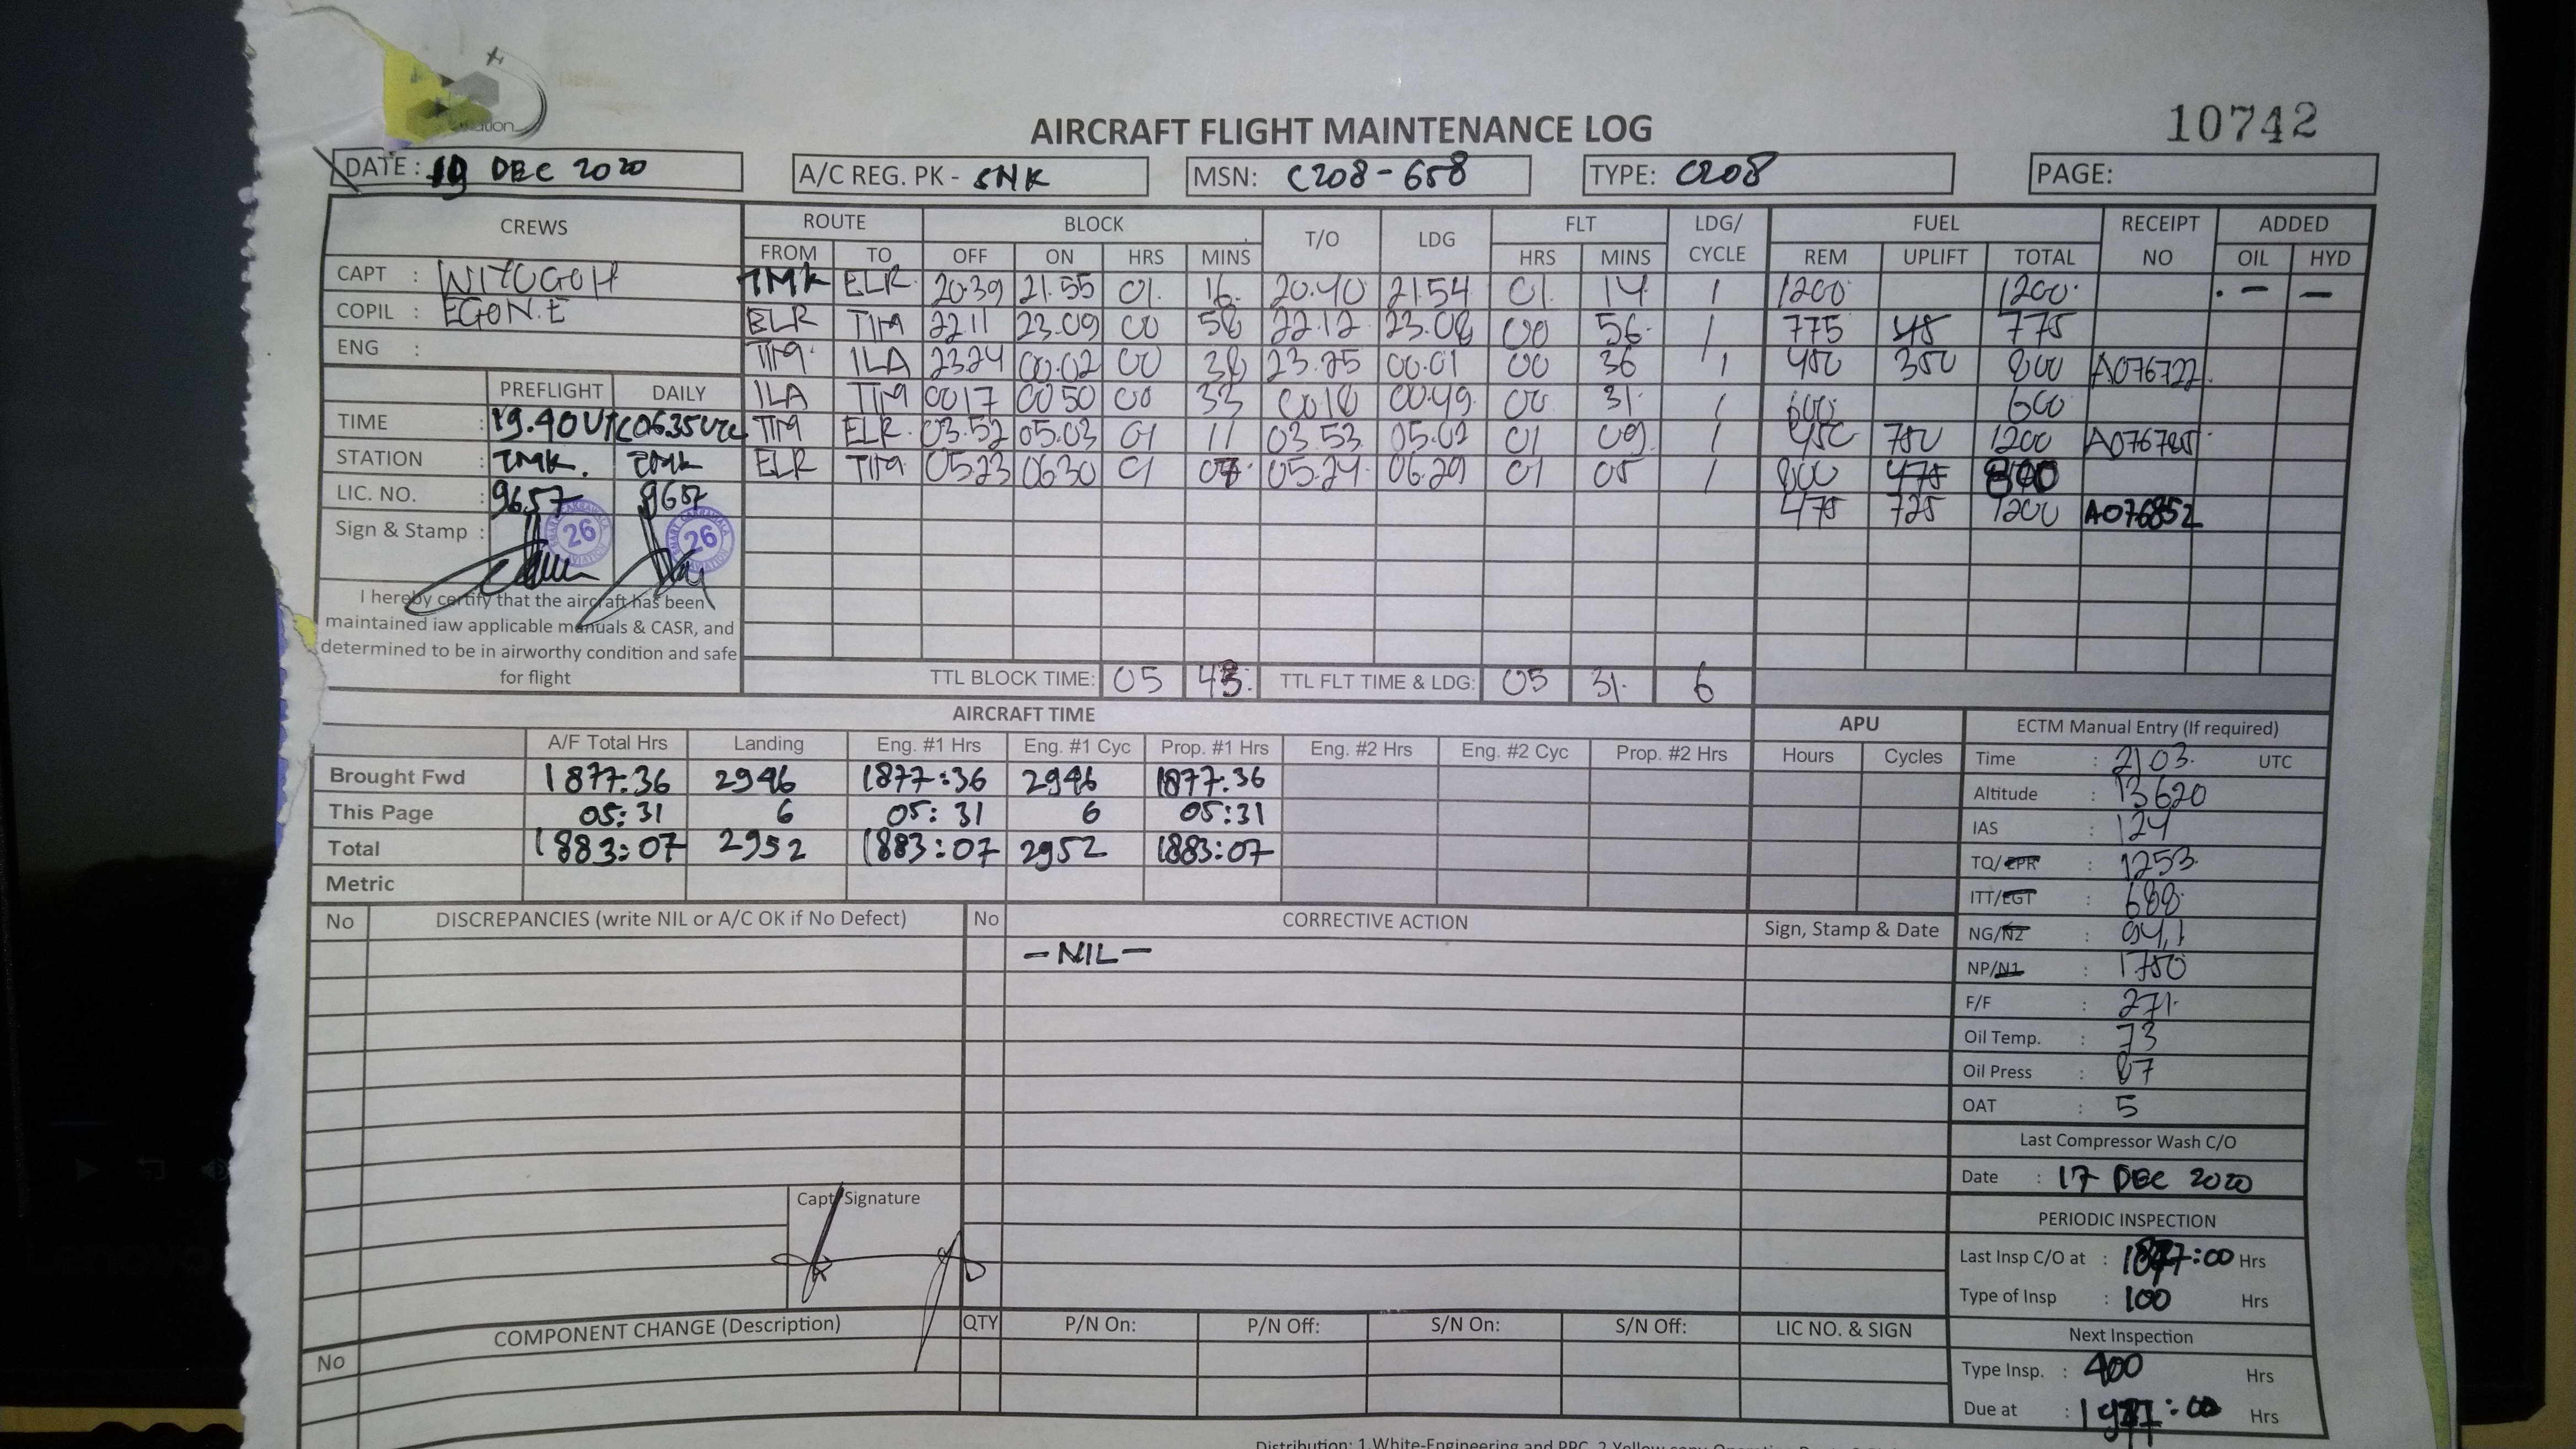 10742
AIRCRAFT FLIGHT MAINTENANCE LOG
DATE : 19 DEC 2020 A/C REG. PK - SNK MSN: C208-658 TYPE: C208 PAGE:
CREWS ROUTE BLOCK T/O LDG FLT LDG/CYCLE FUEL RECEIPT NO ADDED
FROM TO OFF ON HRS MINS HRS MINS REM UPLIFT TOTAL OIL HYD
CAPT : TMK ELR 20.39 21.55 01 16 20.40 21.54 01 14 1 1200 1200 - -
COPIL : EGON.E ELR TIM 22.11 23.09 00 58 22.12 23.08 00 56 1 775 775
ENG : TIM ILA 23.24 00.02 00 38 23.25 00.01 00 36 1 450 350 800 A076722
PREFLIGHT DAILY ILA TIM 0017 0050 00 33 0018 00.49 00 31 1 600 600
TIME : 19.40 UTC 0635 UTC TIM ELR 03.52 05.03 01 11 03.53 05.02 01 09 1 450 750 1200
STATION : TMK. TMK ELR TIM 05.23 0630 01 07 05.24 06.29 01 05 1 800 475
LIC. NO. : 9657 9657 475 725 1200 A076852
Sign & Stamp : 26 26
I hereby certify that the aircraft has been
maintained iaw applicable manuals & CASR, and
determined to be in airworthy condition and safe
for flight
TTL BLOCK TIME: 05 43 TTL FLT TIME & LDG: 05 31 6
AIRCRAFT TIME APU ECTM Manual Entry (If required)
A/F Total Hrs Landing Eng. #1 Hrs Eng. #1 Cyc Prop. #1 Hrs Eng. #2 Hrs Eng. #2 Cyc Prop. #2 Hrs Hours Cycles Time : 2103 UTC
Brought Fwd 1877:36 2946 1877:36 2946 1877:36 Altitude : 13620
This Page 05:31 6 05:31 6 05:31 IAS : 124
Total 1883:07 2952 1883:07 2952 1883:07 TQ/EPR : 1253
Metric ITT/EGT : 688
No DISCREPANCIES (write NIL or A/C OK if No Defect) No CORRECTIVE ACTION Sign, Stamp & Date NG/N2 : 94,1
-NIL- NP/N1 : 1750
F/F : 271
Oil Temp. : 73
Oil Press : 87
OAT : 5
Last Compressor Wash C/O
Date : 17 DEC 2020
Capt Signature
PERIODIC INSPECTION
Last Insp C/O at : 1877:00 Hrs
Type of Insp : 100 Hrs
No COMPONENT CHANGE (Description) QTY P/N On: P/N Off: S/N On: S/N Off: LIC NO. & SIGN Next Inspection
Type Insp. : 400 Hrs
Due at : 1977:00 Hrs
Distribution: 1.White-Engineering and PPC